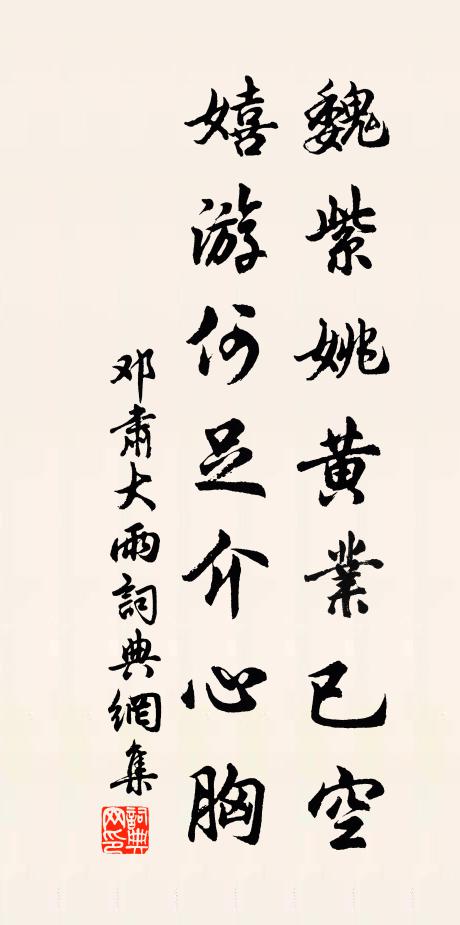 魏紫姚黄業已空
嬉游何足介心胸
邓肅大雨詞典網集
詞典網印